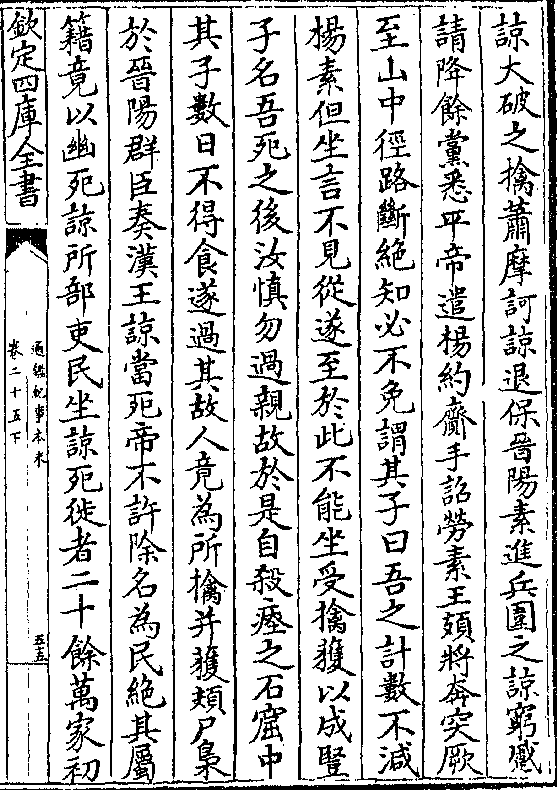 諒大破之擒蕭摩訶諒退保晉陽素進兵圍之諒窮蹙
請降餘黨悉平帝遣楊約齎手詔勞素王頍將奔突厥
至山中徑路斷絕知必不免謂其子曰吾之計數不減
楊素但坐言不見從遂至於此不能坐受擒獲以成豎
子名吾死之後汝慎勿過親故於是自殺瘞之石窟中
其子數日不得食遂過其故人竟為所擒并獲頍尸梟
於晉陽群臣奏漢王諒當死帝不許除名為民絕其屬
籍竟以幽死諒所部吏民坐諒死徙者二十餘萬家初
欽定四庫全書
通鑑紀事本末
卷二十五下
五五